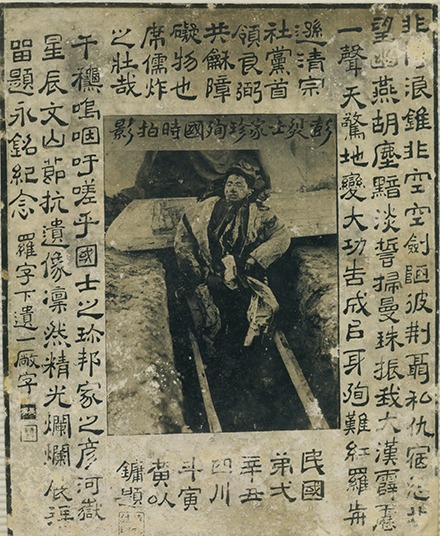 非博浪錐非空空劍陋彼荆聶私仇
望幽燕胡塵黯淡誓掃曼珠振我大漢霹靂
一聲天驚地變大功告成㠯身殉難紅羅歬
遜清宗
社黨首
領良弼
共龢障
礙物也
席儒炸
之壯哉
彭烈士家珍殉國時拍影
千穐嗚咽吁嗟乎國士之珍邦家之彥河嶽
星辰文山節抗遺像凜然精光爛爛
畱題永銘紀念 羅字下遺一厰字
民國
弟弌
丑
四川
斗寅
黃以
鏞題